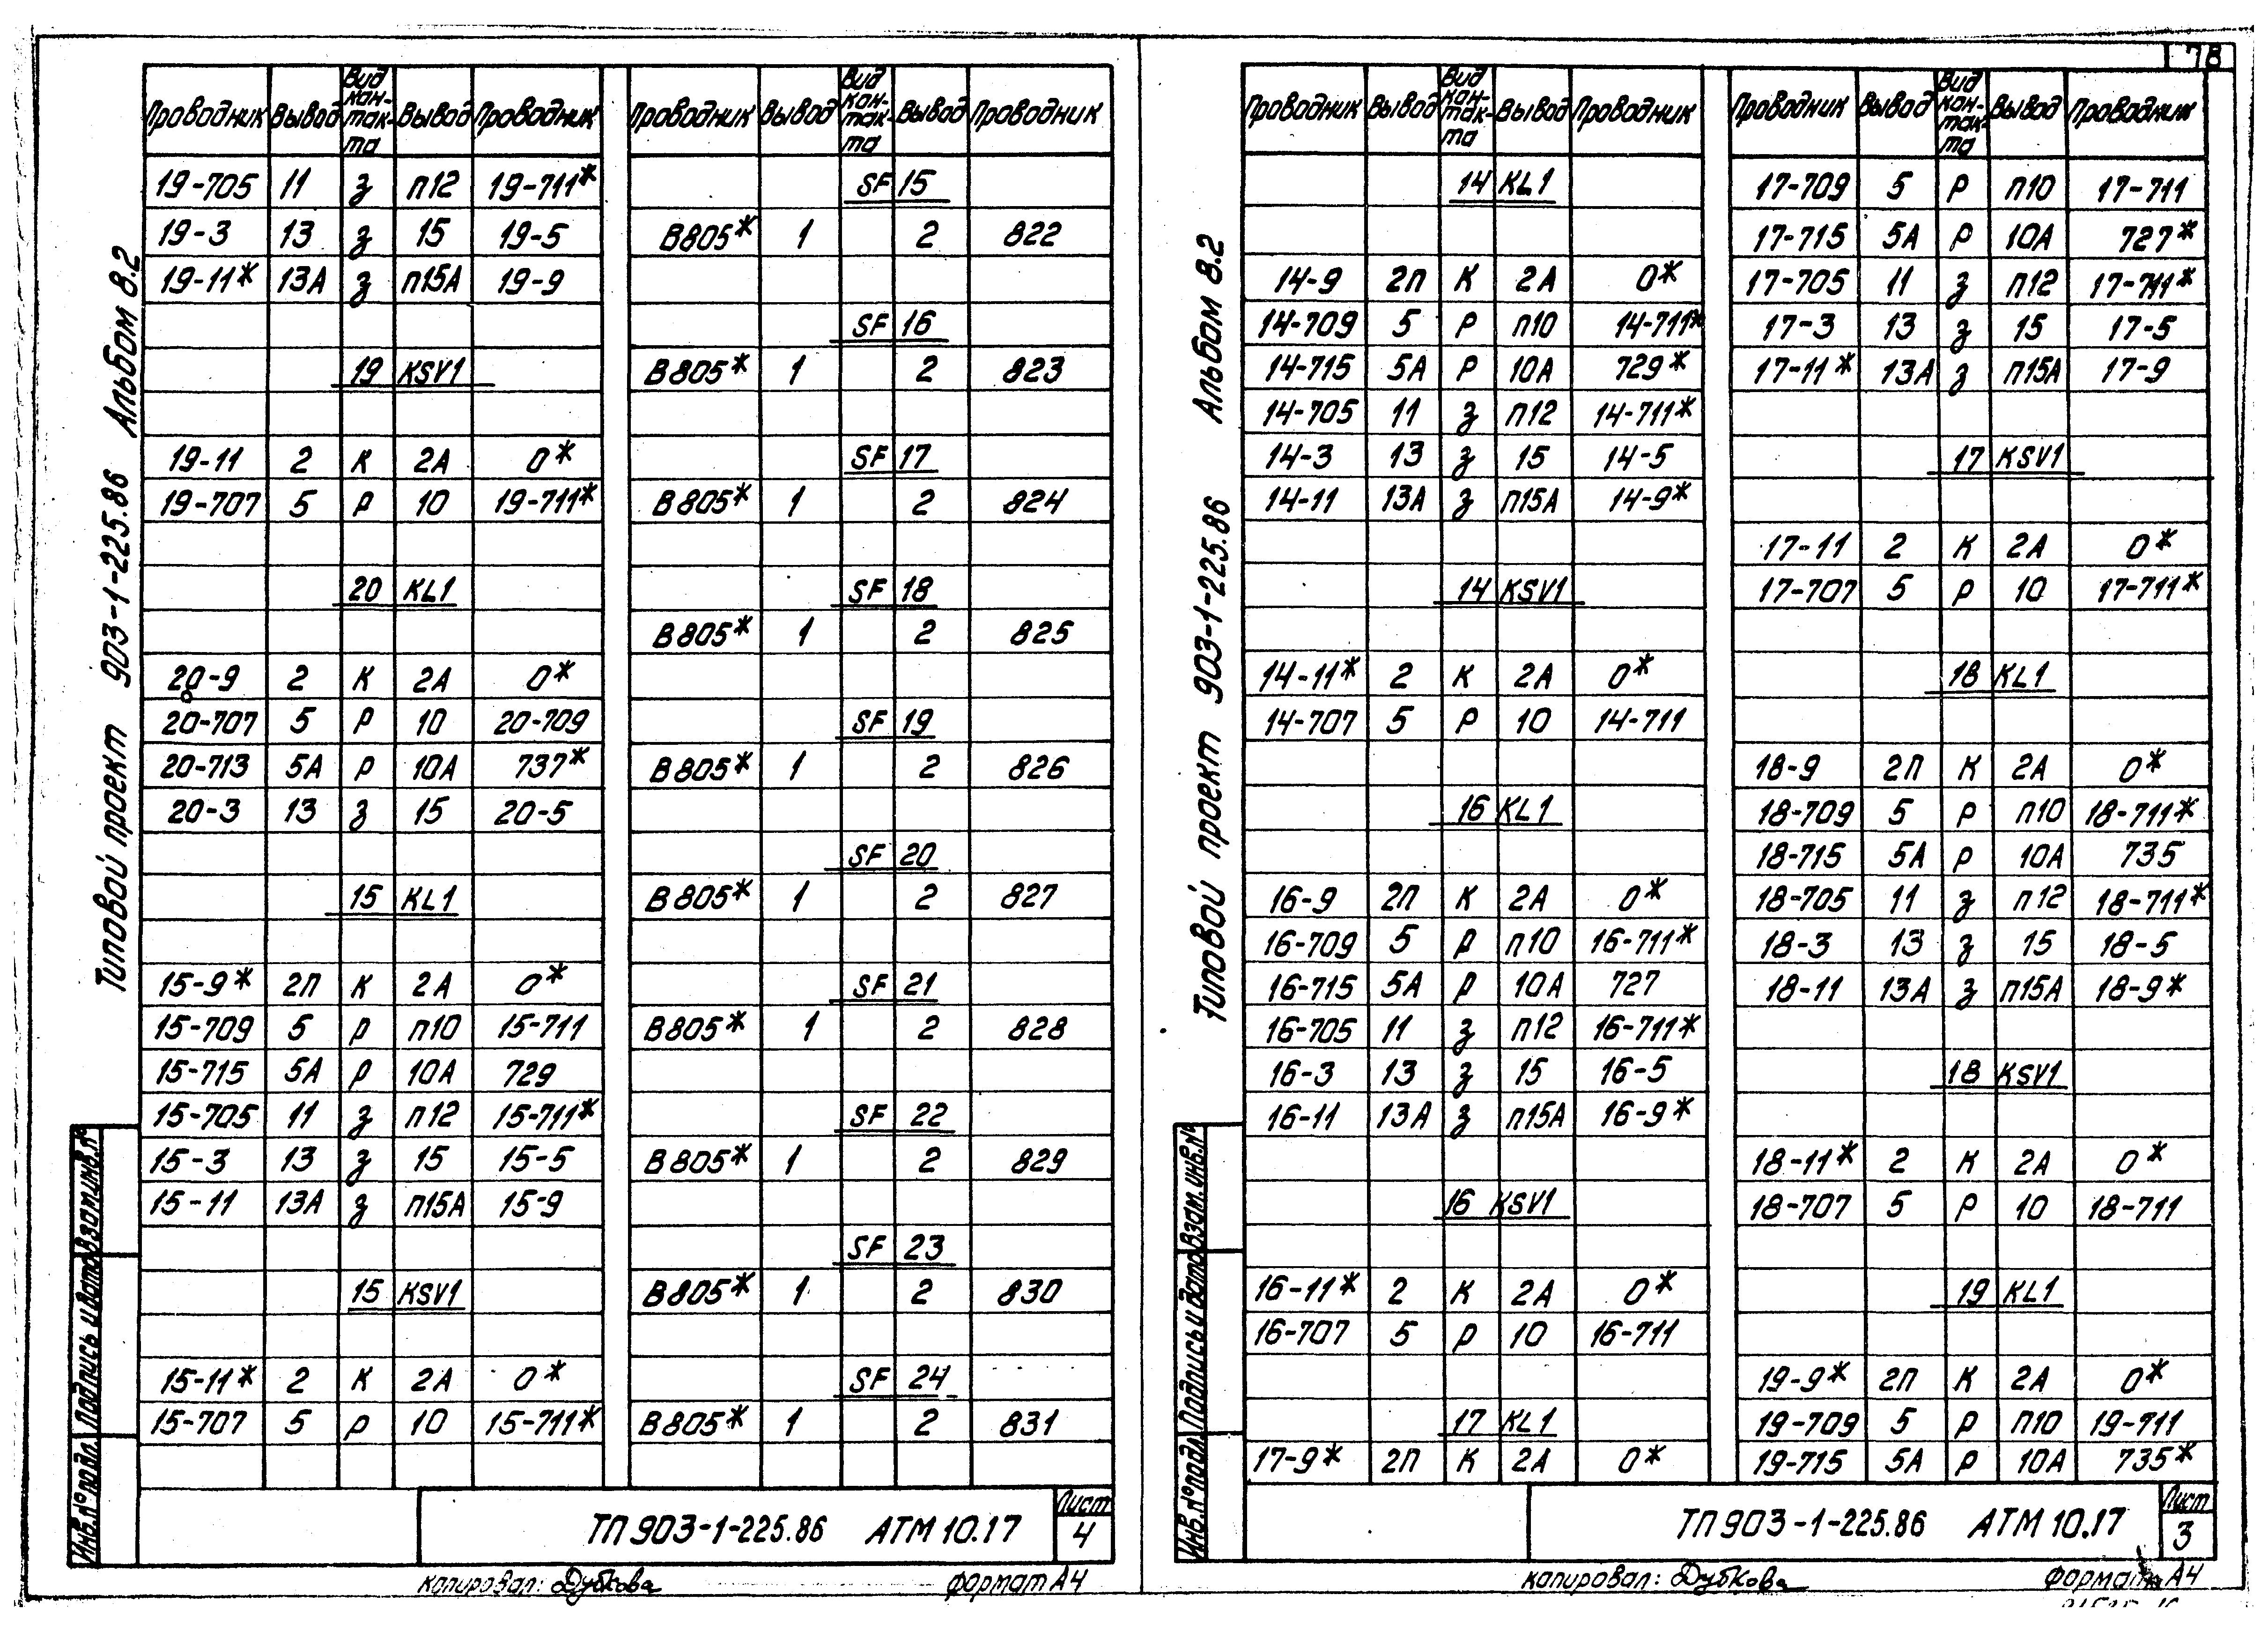 78
Проводник Вывод Вид кон-так-та Вывод Проводник
19-705 11 з п12 19-711*
19-3 13 з 15 19-5
19-11* 13А з п15А 19-9
19 KSV1
19-11 2 К 2А 0*
19-707 5 Р 10 19-711*
20 KL1
20-9 2 К 2А 0*
20-707 5 Р 10 20-709
20-713 5А Р 10А 737*
20-3 13 з 15 20-5
15 KL1
15-9* 2П К 2А 0*
15-709 5 Р п10 15-711
15-715 5А Р 10А 729
15-705 11 з п12 15-711*
15-3 13 з 15 15-5
15-11 13А з п15А 15-9
15 KSV1
15-11* 2 К 2А 0*
15-707 5 Р 10 15-711*
Проводник Вывод Вид кон-так-та Вывод Проводник
SF 15
В805* 1 2 822
SF 16
В805* 1 2 823
SF 17
В805* 1 2 824
SF 18
В805* 1 2 825
SF 19
В805* 1 2 826
SF 20
В805* 1 2 827
SF 21
В805* 1 2 828
SF 22
В805* 1 2 829
SF 23
В805* 1 2 830
SF 24
В805* 1 2 831
Типовой проект 903-1-225.86 Альбом 8.2
Инв.№ подл. Подпись и дата Взам.инв.№
ТП 903-1-225.86 АТМ 10.17
Лист
4
копировал: Дубкова формат А4
Проводник Вывод Вид кон-так-та Вывод Проводник
14 KL1
14-9 2П К 2А 0*
14-709 5 Р п10 14-711*
14-715 5А Р 10А 729*
14-705 11 з п12 14-711*
14-3 13 з 15 14-5
14-11 13А з п15А 14-9*
14 KSV1
14-11* 2 К 2А 0*
14-707 5 Р 10 14-711
16 KL1
16-9 2П К 2А 0*
16-709 5 Р п10 16-711*
16-715 5А Р 10А 727
16-705 11 з п12 16-711*
16-3 13 з 15 16-5
16-11 13А з п15А 16-9*
16 KSV1
16-11* 2 К 2А 0*
16-707 5 Р 10 16-711
17 KL1
17-9* 2П К 2А 0*
Проводник Вывод Вид кон-так-та Вывод Проводник
17-709 5 Р п10 17-711
17-715 5А Р 10А 727*
17-705 11 з п12 17-711*
17-3 13 з 15 17-5
17-11* 13А з п15А 17-9
17 KSV1
17-11 2 К 2А 0*
17-707 5 Р 10 17-711*
18 KL1
18-9 2П К 2А 0*
18-709 5 Р п10 18-711*
18-715 5А Р 10А 735
18-705 11 з п12 18-711*
18-3 13 з 15 18-5
18-11 13А з п15А 18-9*
18 KSV1
18-11* 2 К 2А 0*
18-707 5 Р 10 18-711
19 KL1
19-9* 2П К 2А 0*
19-709 5 Р п10 19-711
19-715 5А Р 10А 735*
Типовой проект 903-1-225.86 Альбом 8.2
Инв.№ подл. Подпись и дата Взам.инв.№
ТП 903-1-225.86 АТМ 10.17
Лист
3
копировал: Дубкова формат А4